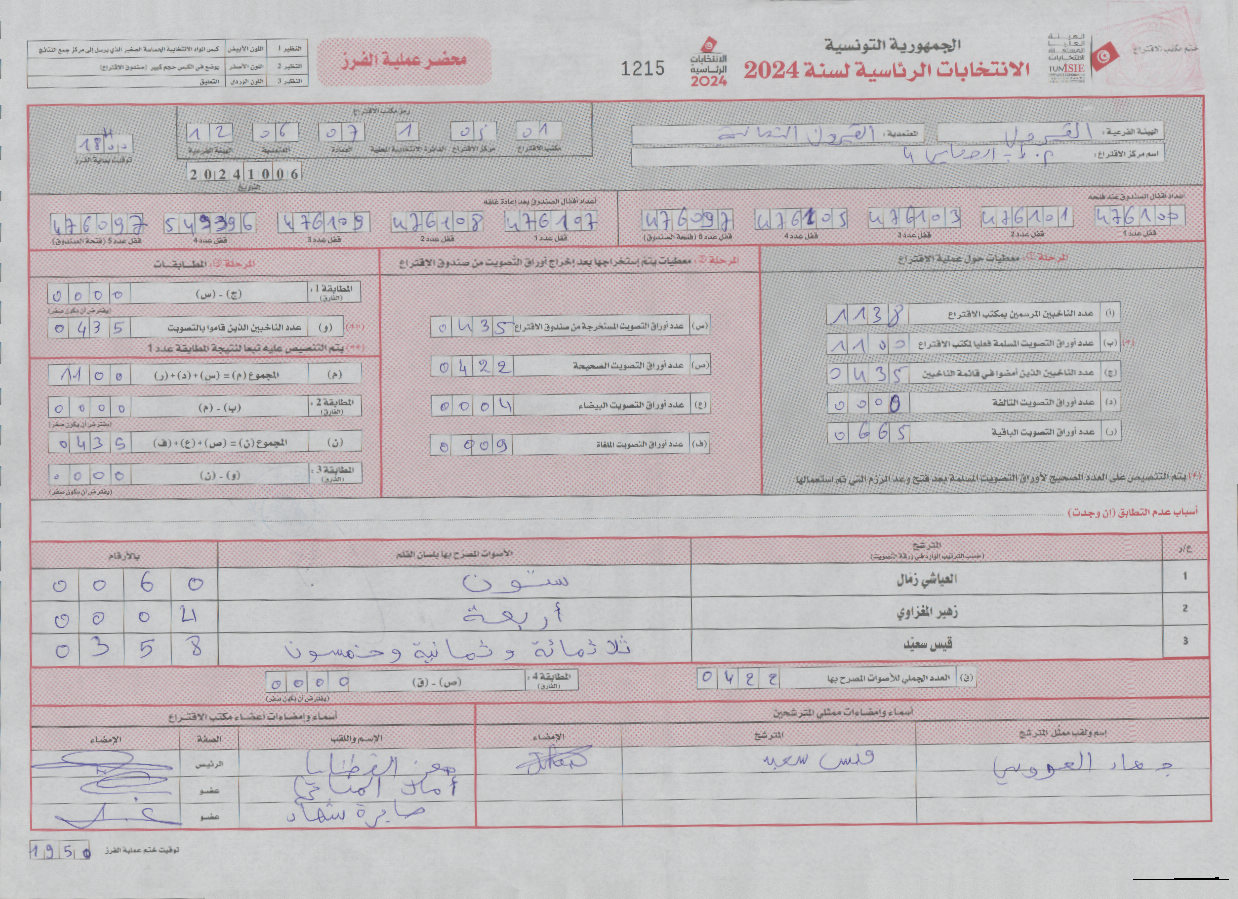 ختم مكتب الاقتراع
الهيئة
العليا
المستقلة
للانتخابات
TUNISIE
الجمهورية التونسية
الانتخابات الرئاسية لسنة 2024
الانتخابات
الرئاسية
2024
1215
محضر عملية الفرز
النظير 1 اللون الأبيض كيس المواد الانتخابية الحساسة الصغير الذي يرسل إلى مركز جمع النتائج
النظير 2 اللون الأصفر يوضع في الكيس حجم كبير (صندوق الاقتراع)
النظير 3 اللون الوردي التعليق
الهيئة الفرعية : القيروان المعتمدية : القيروان الشمالية
اسم مركز الاقتراع :
رمز مكتب الاقتراع
01 05 1 07 06 12
مكتب الاقتراع مركز الاقتراع الدائرة الانتخابية المحلية العمادة المعتمدية الهيئة الفرعية
20241006
التاريخ
18H00
توقيت بداية الفرز
أعداد أقفال الصندوق عند فتحه
476100 476101 476103 476105 476097
قفل عدد 1 قفل عدد 2 قفل عدد 3 قفل عدد 4 قفل عدد 5 (فتحة الصندوق)
أعداد أقفال الصندوق بعد إعادة غلقه
476107 476108 476109 549396 476097
قفل عدد 1 قفل عدد 2 قفل عدد 3 قفل عدد 4 قفل عدد 5 (فتحة الصندوق)
المرحلة ①: معطيات حول عملية الاقتراع
(ا) عدد الناخبين المرسمين بمكتب الاقتراع 1138
(*) (ب) عدد أوراق التصويت المسلمة فعليا لمكتب الاقتراع 1100
(ج) عدد الناخبين الذين أمضوا في قائمة الناخبين 0435
(د) عدد أوراق التصويت التالفة 0000
(ر) عدد أوراق التصويت الباقية 0665
(*) يتم التنصيص على العدد الصحيح لأوراق التصويت المسلمة بعد فتح وعد الرزم التي تم استعمالها
المرحلة ②: معطيات يتم إستخراجها بعد إخراج أوراق التصويت من صندوق الاقتراع
(س) عدد أوراق التصويت المستخرجة من صندوق الاقتراع 0435
(ص) عدد أوراق التصويت الصحيحة 0422
(ع) عدد أوراق التصويت البيضاء 0004
(ف) عدد أوراق التصويت الملغاة 0009
المرحلة ③: المطابقات
المطابقة 1 : (الفارق) (ج) - (س) 0000
(يفترض أن يكون صفر)
(**) (و) عدد الناخبين الذين قاموا بالتصويت 0435
(**) يتم التنصيص عليه تبعا لنتيجة المطابقة عدد 1
(م) المجموع (م) = (س)+(د)+(ر) 1100
المطابقة 2 : (الفارق) (ب) - (م) 0000
(يفترض أن يكون صفر)
(ن) المجموع (ن) = (ص)+(ع)+(ف) 0435
المطابقة 3 : (الفارق) (و) - (ن) 0000
(يفترض أن يكون صفر)
أسباب عدم التطابق (ان وجدت)
ع/د المترشح الأصوات المصرح بها بلسان القلم بالأرقام
(حسب الترتيب الوارد في ورقة التصويت)
1 العياشي زمال ستون 0060
2 زهير المغزاوي أربعة 0004
3 قيس سعيّد ثلاثمائة وثمانية وخمسون 0358
(ق) العدد الجملي للأصوات المصرح بها 0422
المطابقة 4 : (الفارق) (ص) - (ق) 0000
(يفترض أن يكون صفر)
أسماء وإمضاءات ممثلي المترشحين
إسم ولقب ممثل المترشح المترشح الإمضاء
قيس سعيد
أسماء وإمضاءات أعضاء مكتب الاقتراع
الإسم واللقب الصفة الإمضاء
الرئيس
عضو
عضو
توقيت ختم عملية الفرز 1950